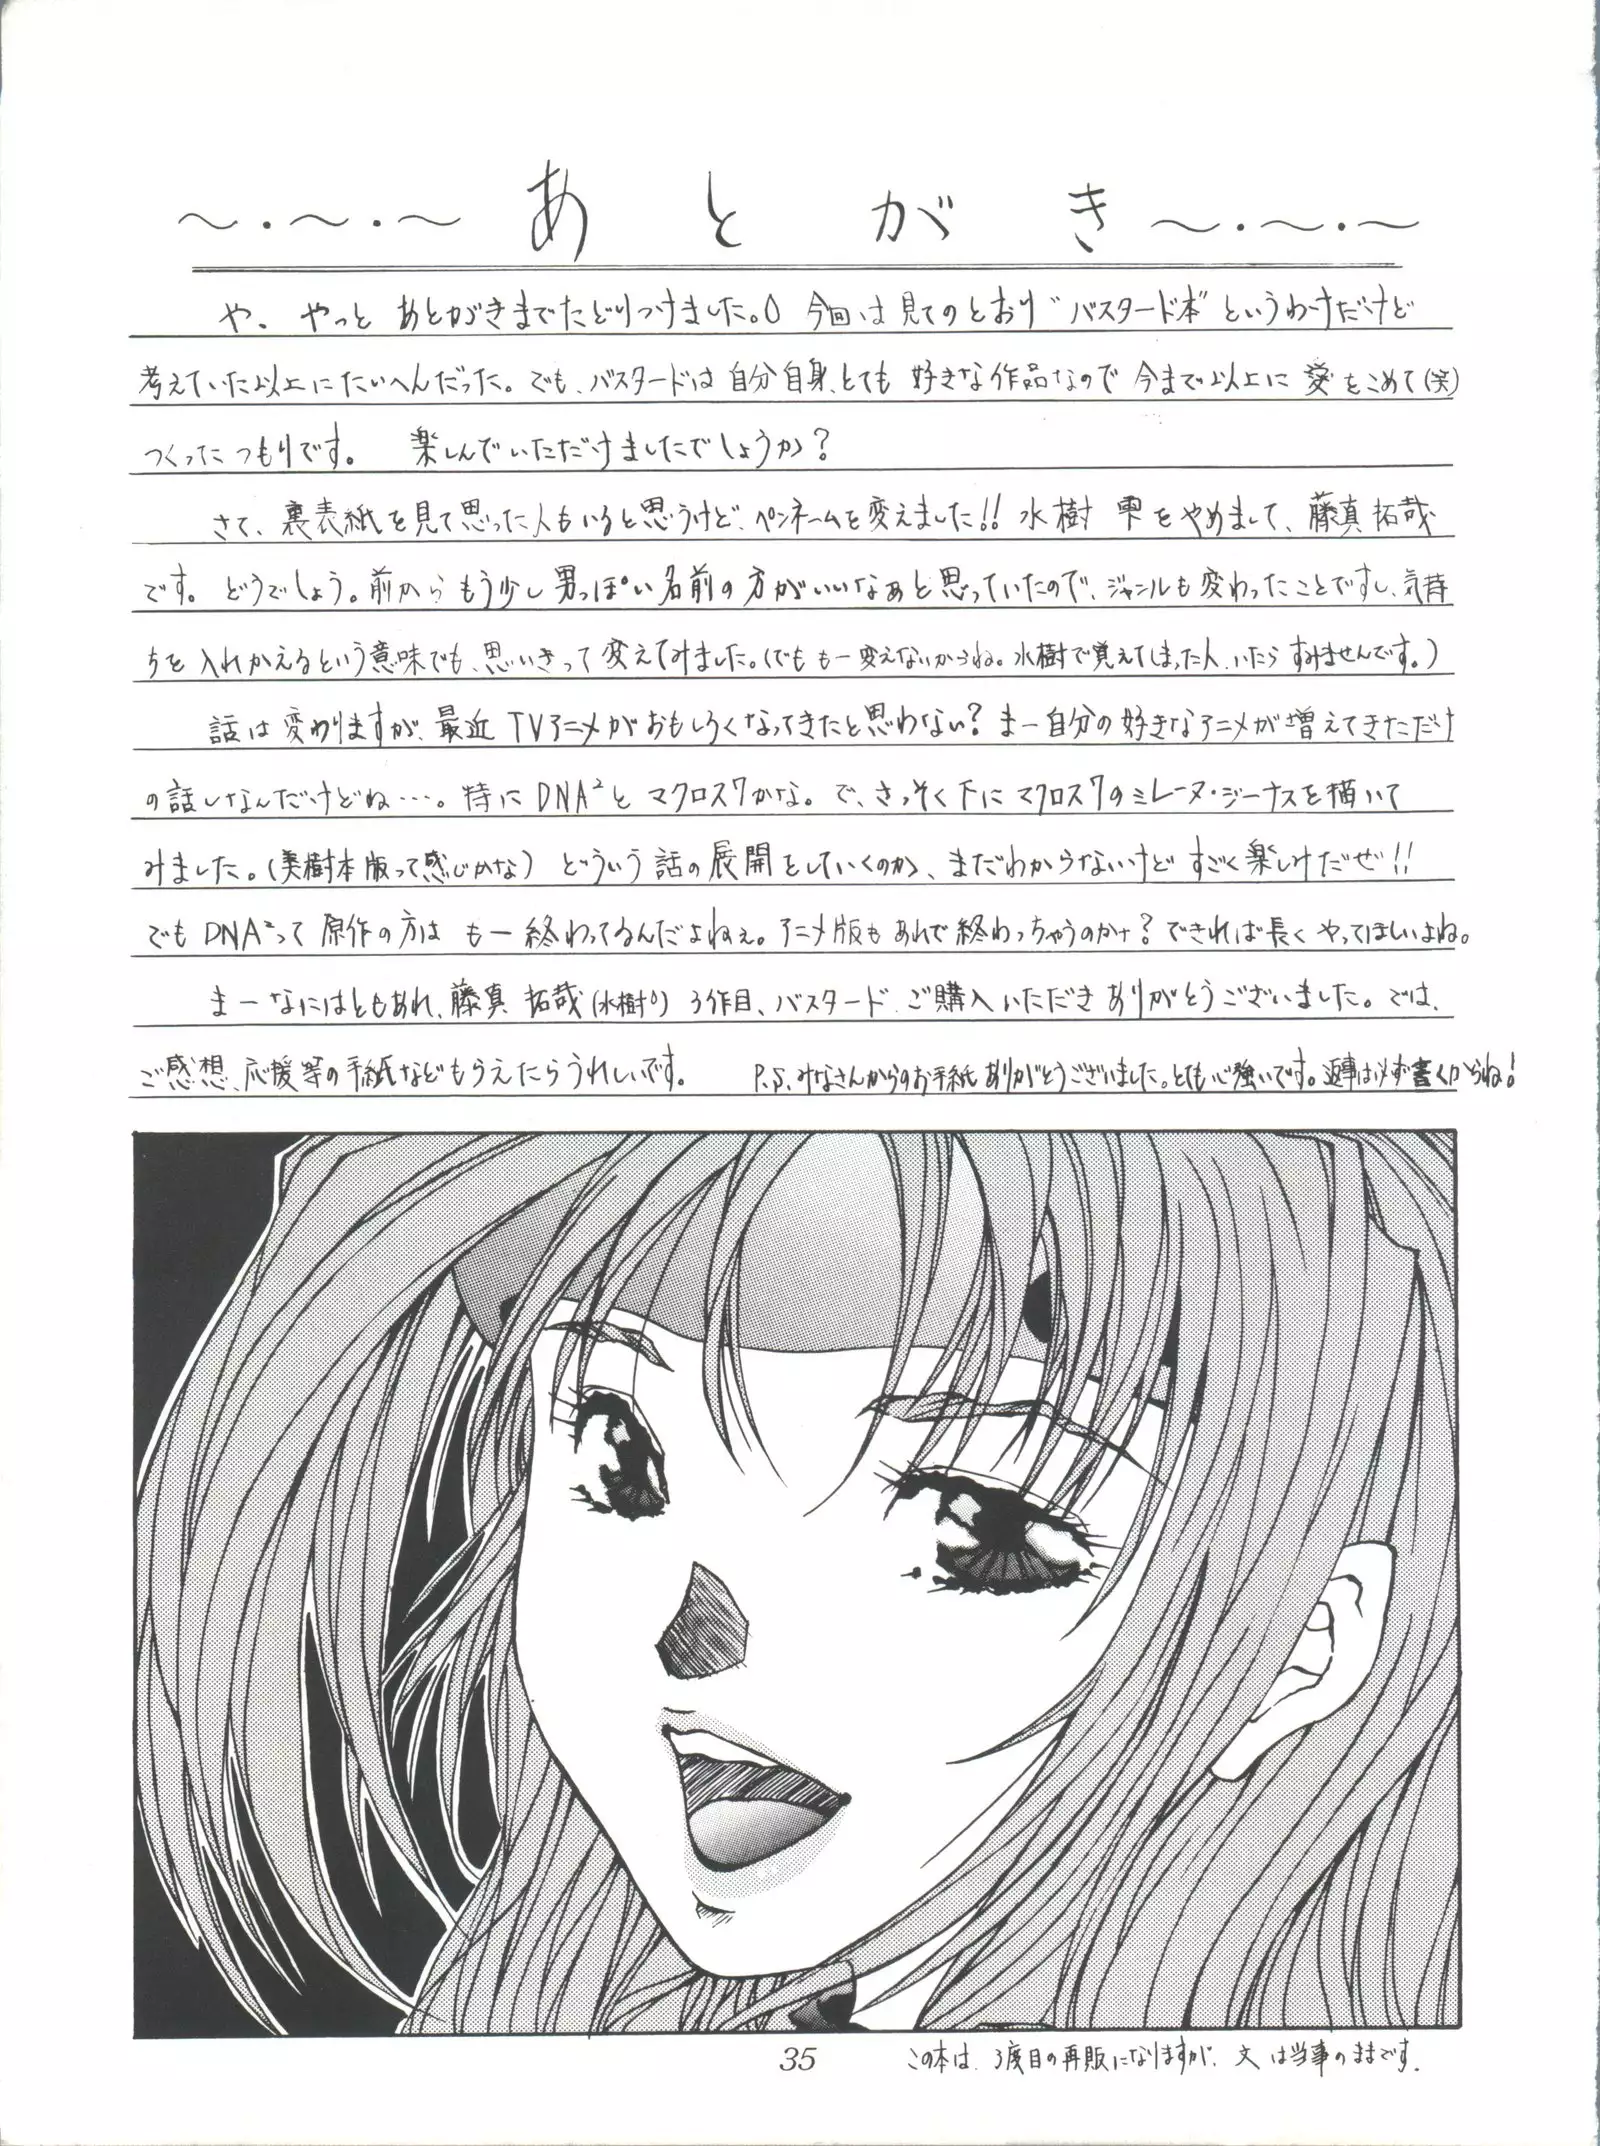 ～・～・～ あとがき ～・～・～
や、やっと あとがきまでたどりつけました。 今回は見てのとおり“バスタード本”というわけだけど
考えていた以上にたいへんだった。でも、バスタードは自分自身、とても 好きな作品なので 今まで以上に 愛をこめて(笑)
つくったつもりです。 楽しんでいただけましたでしょうか?
さて、裏表紙を見て思った人もいると思うけど、ペンネームを変えました!! 水樹 雫をやめまして、藤真拓哉
です。どうでしょう。前から もう少し男っぽい名前の方がいいなぁと思っていたので、ジャンルも変わったことですし、気持
ちを入れかえるという意味でも、思いきって変えてみました。(でももー変えないからね。水樹で覚えてしまった人、いたらすみませんです。)
話は変わりますが、最近 TVアニメがおもしろくなってきたと思わない? まー自分の好きなアニメが増えてきただけ
の話しなんだけどね…。特にDNA²とマクロス7かな。で、さっそく下にマクロス7のミレーヌ・ジーナスを描いて
みました。(美樹本版って感じかな) どういう話の展開をしていくのか、まだわからないけど すごく楽しみだぜ!!
でもDNA²って 原作の方は もー終わってるんだよねぇ。アニメ版もあれで終わっちゃうのかナ? できれば長くやってほしいよね。
まーなにはともあれ、藤真 拓哉(水樹) 3作目、バスタード ご購入いただき ありがとうございました。では、
ご感想、応援等の手紙などもらえたらうれしいです。 P.S.みなさんからのお手紙ありがとうございました。とても心強いです。返事は必ず書くからね!
35
この本は、3度目の再販になりますが、文は当事のままです。